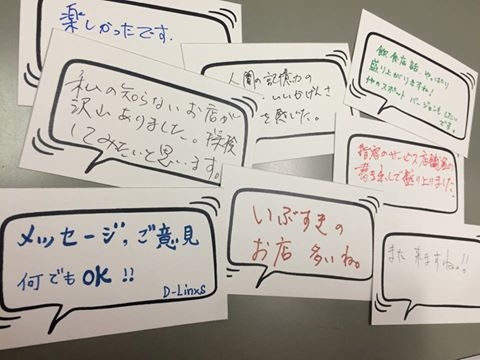 楽しかったです.
人間の記憶力の
いいかげんさ
を感じた。
飲食店話、やっぱり
盛り上がりますね!
他のスポット バージョンもしたい
です。
私の知らないお店が
沢山ありました。探検
してみたいと思います。
指宿のサービス店舗名の
盛り上りました。
メッセージ, ご意見
何でもOK !!
D-Linxs
いぶすきの
お店 多いね。
また 来ますね!!